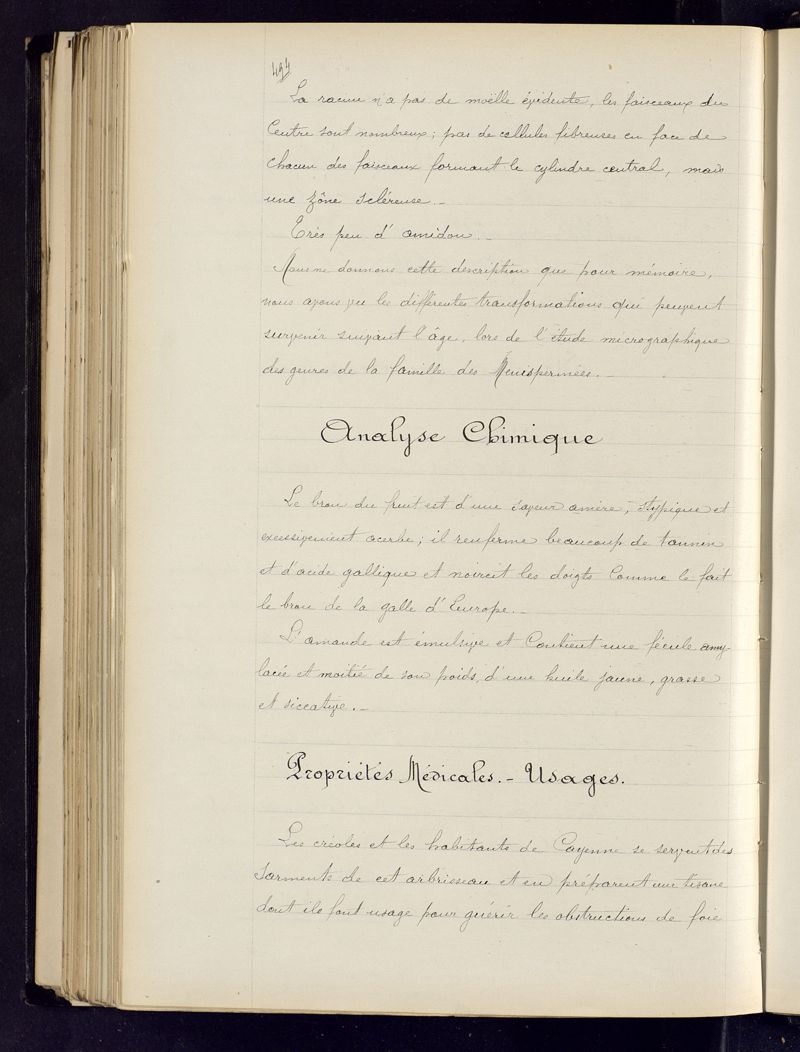 494
La racine n'a pas de moëlle évidente, les faisceaux du
Centre sont nombreux; pas de cellules fibreuses en face de
chacun des faisceaux formant le cylindre central, mais
une zône scléreuse._
Très peu d'amidon._
Nous ne donnons cette description que pour mémoire,
nous avons vu les différentes transformations qui peuvent
survenir suivant l'âge, lors de l'étude micrographique
des genres de la famille des Ménispermées._
Analyse Chimique
Le brou du fruit est d'une saveur amère, styptique et
excessivement acerbe; il renferme beaucoup de tannin
et d'acide gallique et noircit les doigts comme le fait
le brou de la galle d'Europe._
L'amande est émulsive et Contient une fécule amy-
lacée et moitié de son poids, d'une huile jaune, grasse
et siccative._
Propriétés Médicales._ Usages.
Les créoles et les habitants de Cayenne se servent des
Sarments de cet arbrisseau et en préparent une tisane
dont ils font usage pour guérir les obstructions de foie